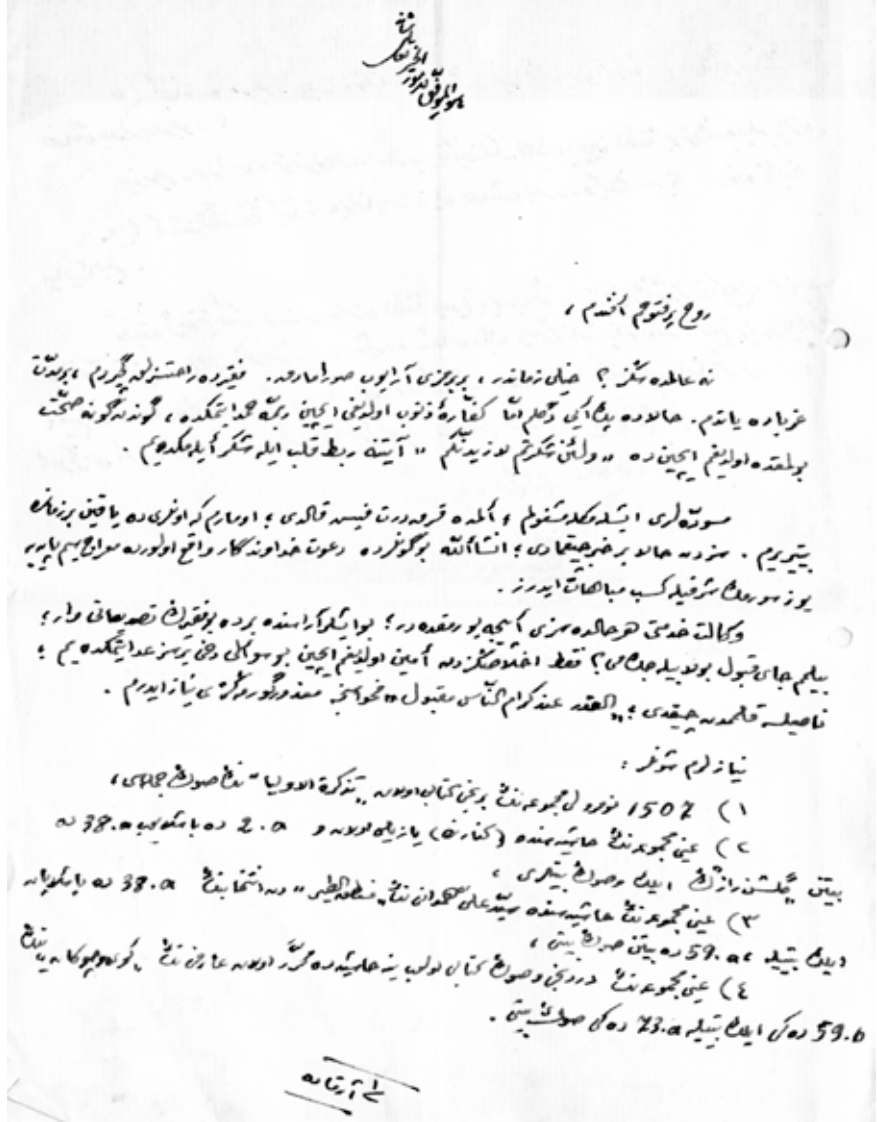 روح پرفتوح افندم ،
نه عالمده سڭز ؟ خيلى زماندر ، بربريمزى آرايوب صورامادق . فقيرده راحتسزلق گچيردم ، بر مدت
خرباده ياتدم . حالا ده پك ايى دگلم امّا كفّارهٔ ذنوب اولديغى ايچين ربمه حمد ايتمكده ، گوندن گونه صحّت
بولمقده اولديغم ايچين ده «ولئن شكرتم لازيدنّكم» آيتنه ربط قلب ايله شكر أيله مكده يم .
مسودّه لرى ايشله مكله مشغولم ؛ ألمده قرق درت فيس قالدى ؛ اومارم كه اونلرى ده ياقين بر زمانده
بيتيريرم . سزدن حالا بر خبر چيقمادى ؛ انشأالله بوگونلرده دعوت خداوندگار واقع اولور ده
يوز سورمك شرفيله كسب مباهات ايدرز .
وكالت خدمتى هر حالده سزى ايجه يورمقده در ؛ بو ايشلر آراسنده بر ده بو فقيرڭ تصديعاتى وار ؛
بيلمم جاى قبول بولابيله جك مى ؟ فقط اخلاصڭزدن أمين اولديغم ايچين بو سوألى دخى يرسز عد ايتمكده يم ؛
ناصيلسه قلمدن چيقدى ؛ «العذر عند كرام النّاس مقبول» فحواسنجه معذور گورولمه مى نياز ايدرم .
نيازلرم شونلر :
١) 1507 نومرولى مجموعه نڭ برنجى كتابى اولان „تذكرة الاوليا“ نڭ صوڭ جمله سى ،
٢) عينى مجموعه نڭ حاشيه سنده (كنارنده) يازيلى اولان و 2.a ده باشلايوب 38.a ده
بيتن „گلشن راز“ڭ ايلك و صوڭ بيتلرى ،
٣) عينى مجموعه نڭ حاشيه سنده سيّد على همدانى نڭ „منطق الطير“ دن انتخابنڭ 38.a ده باشلايان
ايلك بيتيله ، 59.a ده بيتن صوڭ بيتى ،
٤) عينى مجموعه نڭ دردنجى و صوڭ كتابى اولوب ينه حاشيه ده محرّر اولان عارفى نڭ „گوى و چوگان“ ينڭ
59.b ده كى ايلك بيتيله 73.a ده كى صوڭ بيتى .